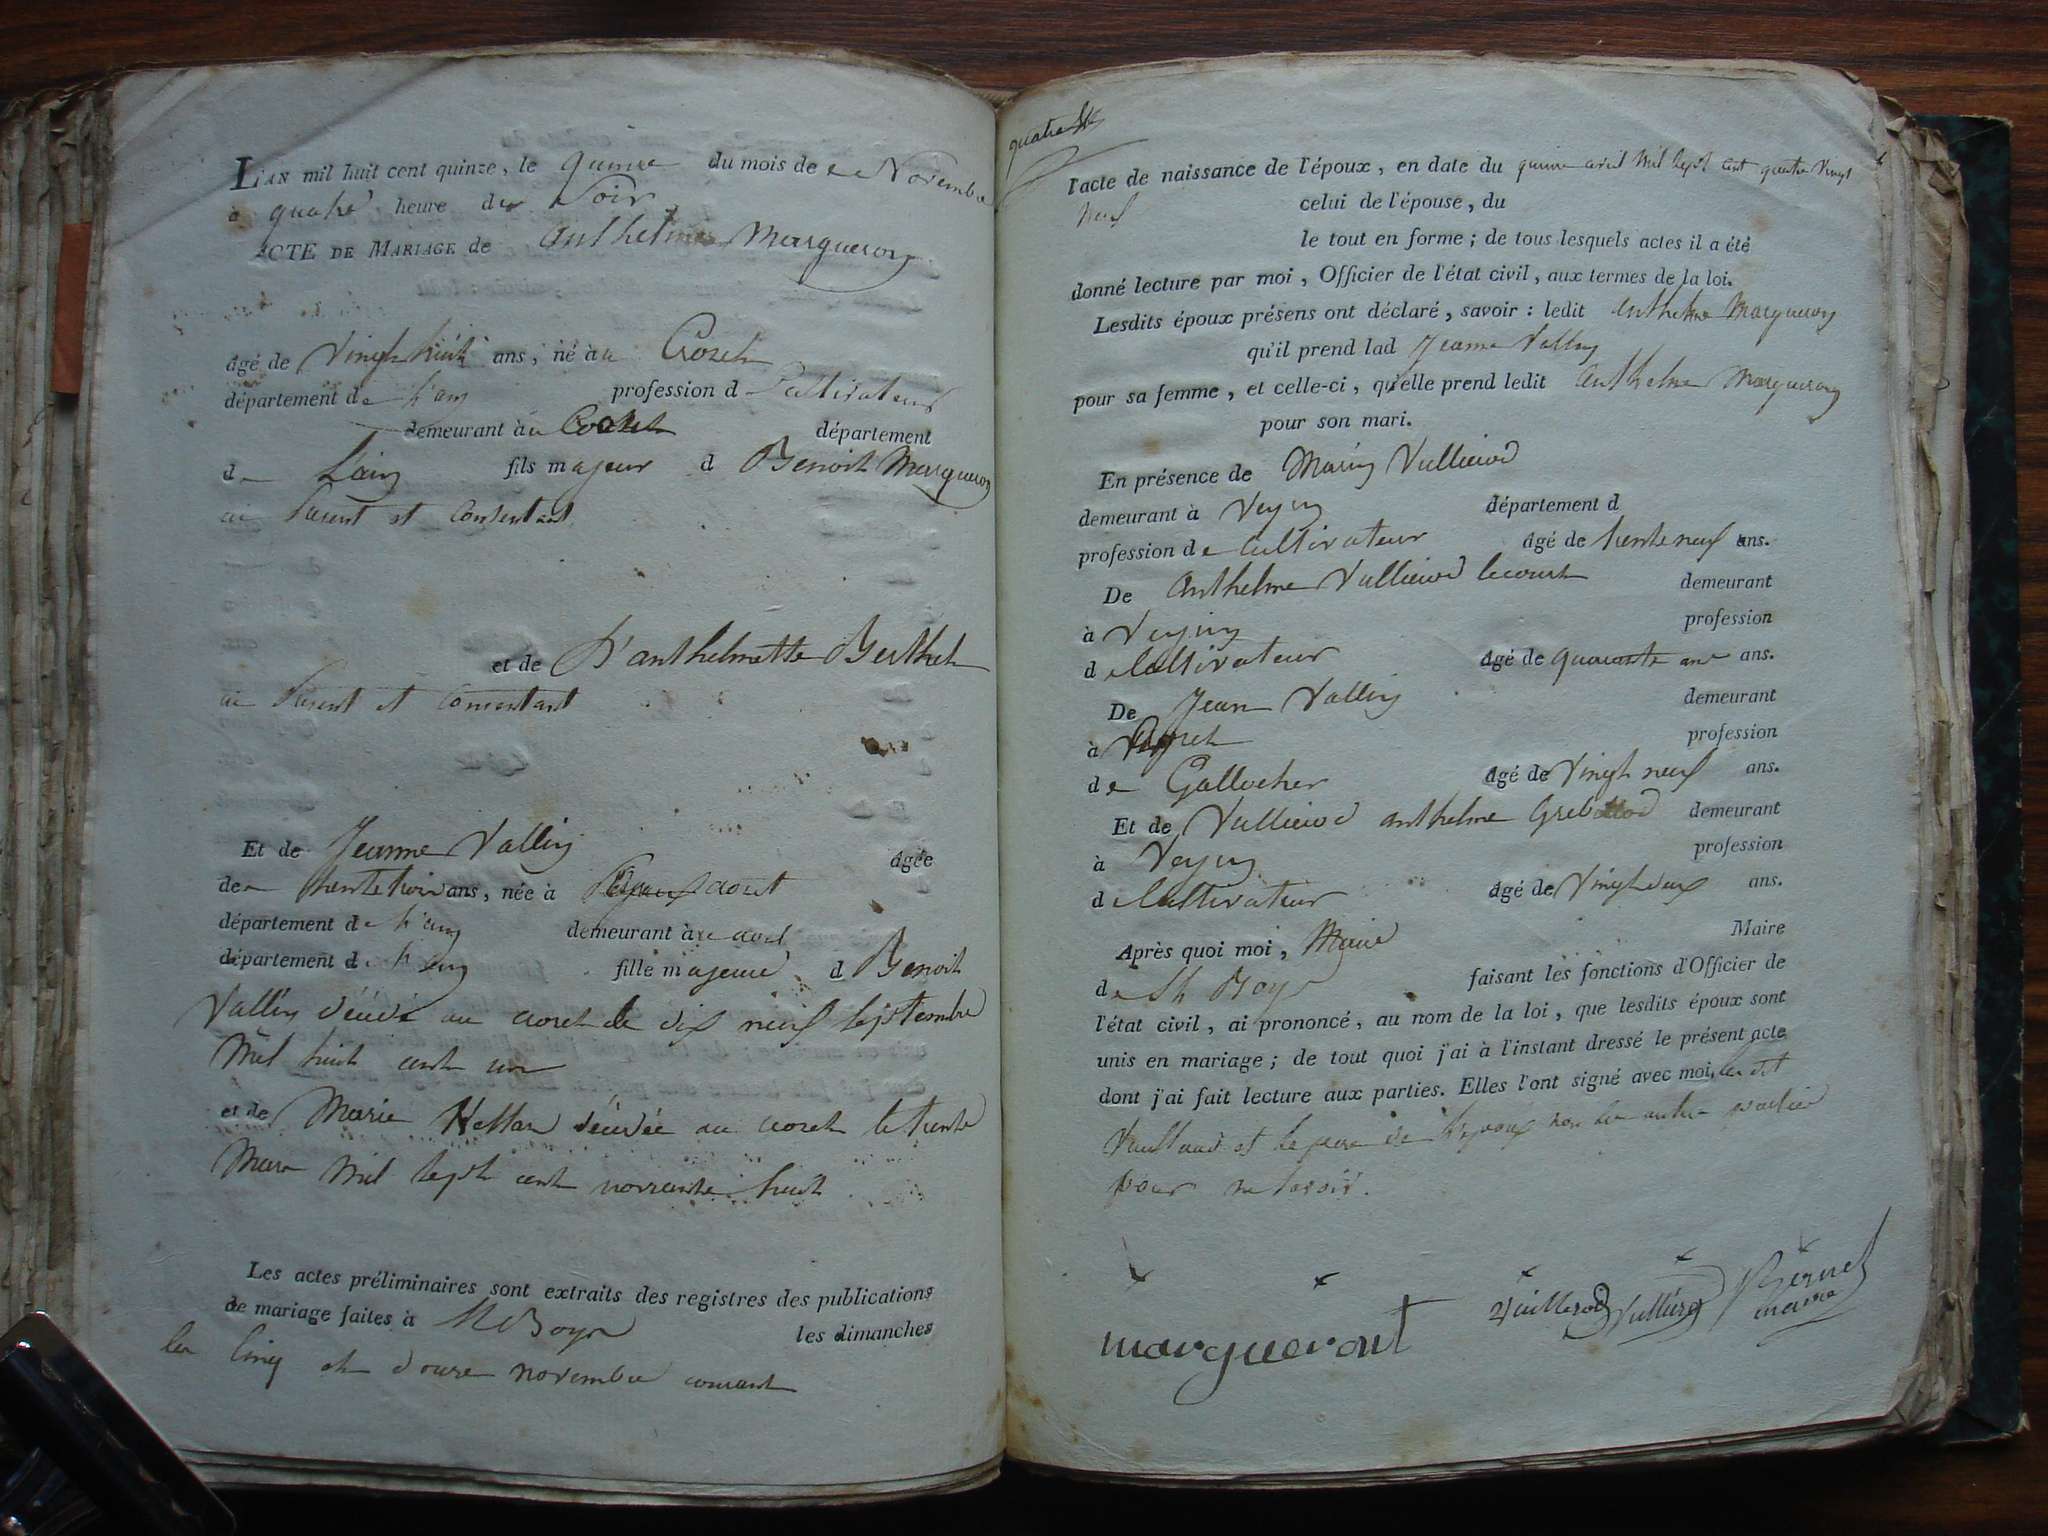 L'AN mil huit cent quinze, le quinze du mois de Novembre
à quatre heure du Soir
ACTE DE MARIAGE de anthelme Margueron
âgé de vingt huit ans, né au Croset
département de l'ain profession de Cultivateur
demeurant au Croset département
de L'ain fils majeur d Benoit Margueron
ici Présent et Consentant
et de D'anthelmette Berthet
ici Présent et Consentant
Et de Jeanne Vallin âgée
de trente trois ans, née à croset
département de l'ain demeurant au croset
département de l'ain fille majeure d Benoit
Vallin décédé au croset le dix neuf septembre
Mil huit cent un
et de Marie décédée au croset le trente
Mars Mil sept cent nonante huit
Les actes préliminaires sont extraits des registres des publications
de mariage faites à St Boys les dimanches
les cinq et douze novembre courant
quatre
l'acte de naissance de l'époux, en date du quinze avril Mil sept cent quatre vingt
neuf celui de l'épouse, du
le tout en forme; de tous lesquels actes il a été
donné lecture par moi, Officier de l'état civil, aux termes de la loi.
Lesdits époux présens ont déclaré, savoir: ledit anthelme Margueron
qu'il prend lad Jeanne Vallin
pour sa femme, et celle-ci, qu'elle prend ledit anthelme Margueron
pour son mari.
En présence de Marin Vullierod
demeurant à Veyrin département d
profession de cultivateur âgé de trente neuf ans.
De anthelme Vullierod lecourt demeurant
à Veyrin profession
d Cultivateur âgé de quarante ans ans.
De Jean Vallin demeurant
à Croset profession
de Gallocher âgé de vingt neuf ans.
Et de Vullierod anthelme demeurant
à Veyrin profession
d Cultivateur âgé de vingt deux ans.
Après quoi moi, Maire Maire
de St Boys faisant les fonctions d'Officier de
l'état civil, ai prononcé, au nom de la loi, que lesdits époux sont
unis en mariage; de tout quoi j'ai à l'instant dressé le présent acte
dont j'ai fait lecture aux parties. Elles l'ont signé avec moi,
et le pere de l'epoux non les autres parties
pour ne savoir.
margueront
Vuillerod Vullierod Bernet
maire